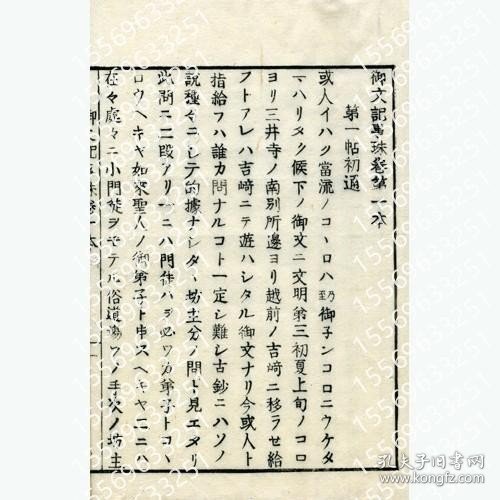 御文記事珠卷第一本
第一帖初通
或人イハク當流ノコヽロハ乃至御子ンコロニウケタ
マハリタク候下ノ御文ニ文明第三初夏上旬ノコロ
ヨリ三井寺ノ南別所邊ヨリ越前ノ吉﨑ニ移ラセ給
フトアレハ吉﨑ニテ遊ハシタル御文ナリ今或人ト
指給フハ誰カ問ナルコト一定シ難シ古鈔ニハソノ
說種々ニシテ的據ナシタヽ坊主分ノ問ト見エタリ
此問ニ二段アリ一ニハ門徒ハヲ必ワカ弟子トコヽ
ロウヘキヤ如來聖人ノ御弟子ト申スヘキヤ二ニハ
在々處々ニ小門徒ヲモテル俗道場ワノ手次ノ坊主
御文記事珠卷一本
孔夫子旧书网
kongfz.com
15569633251